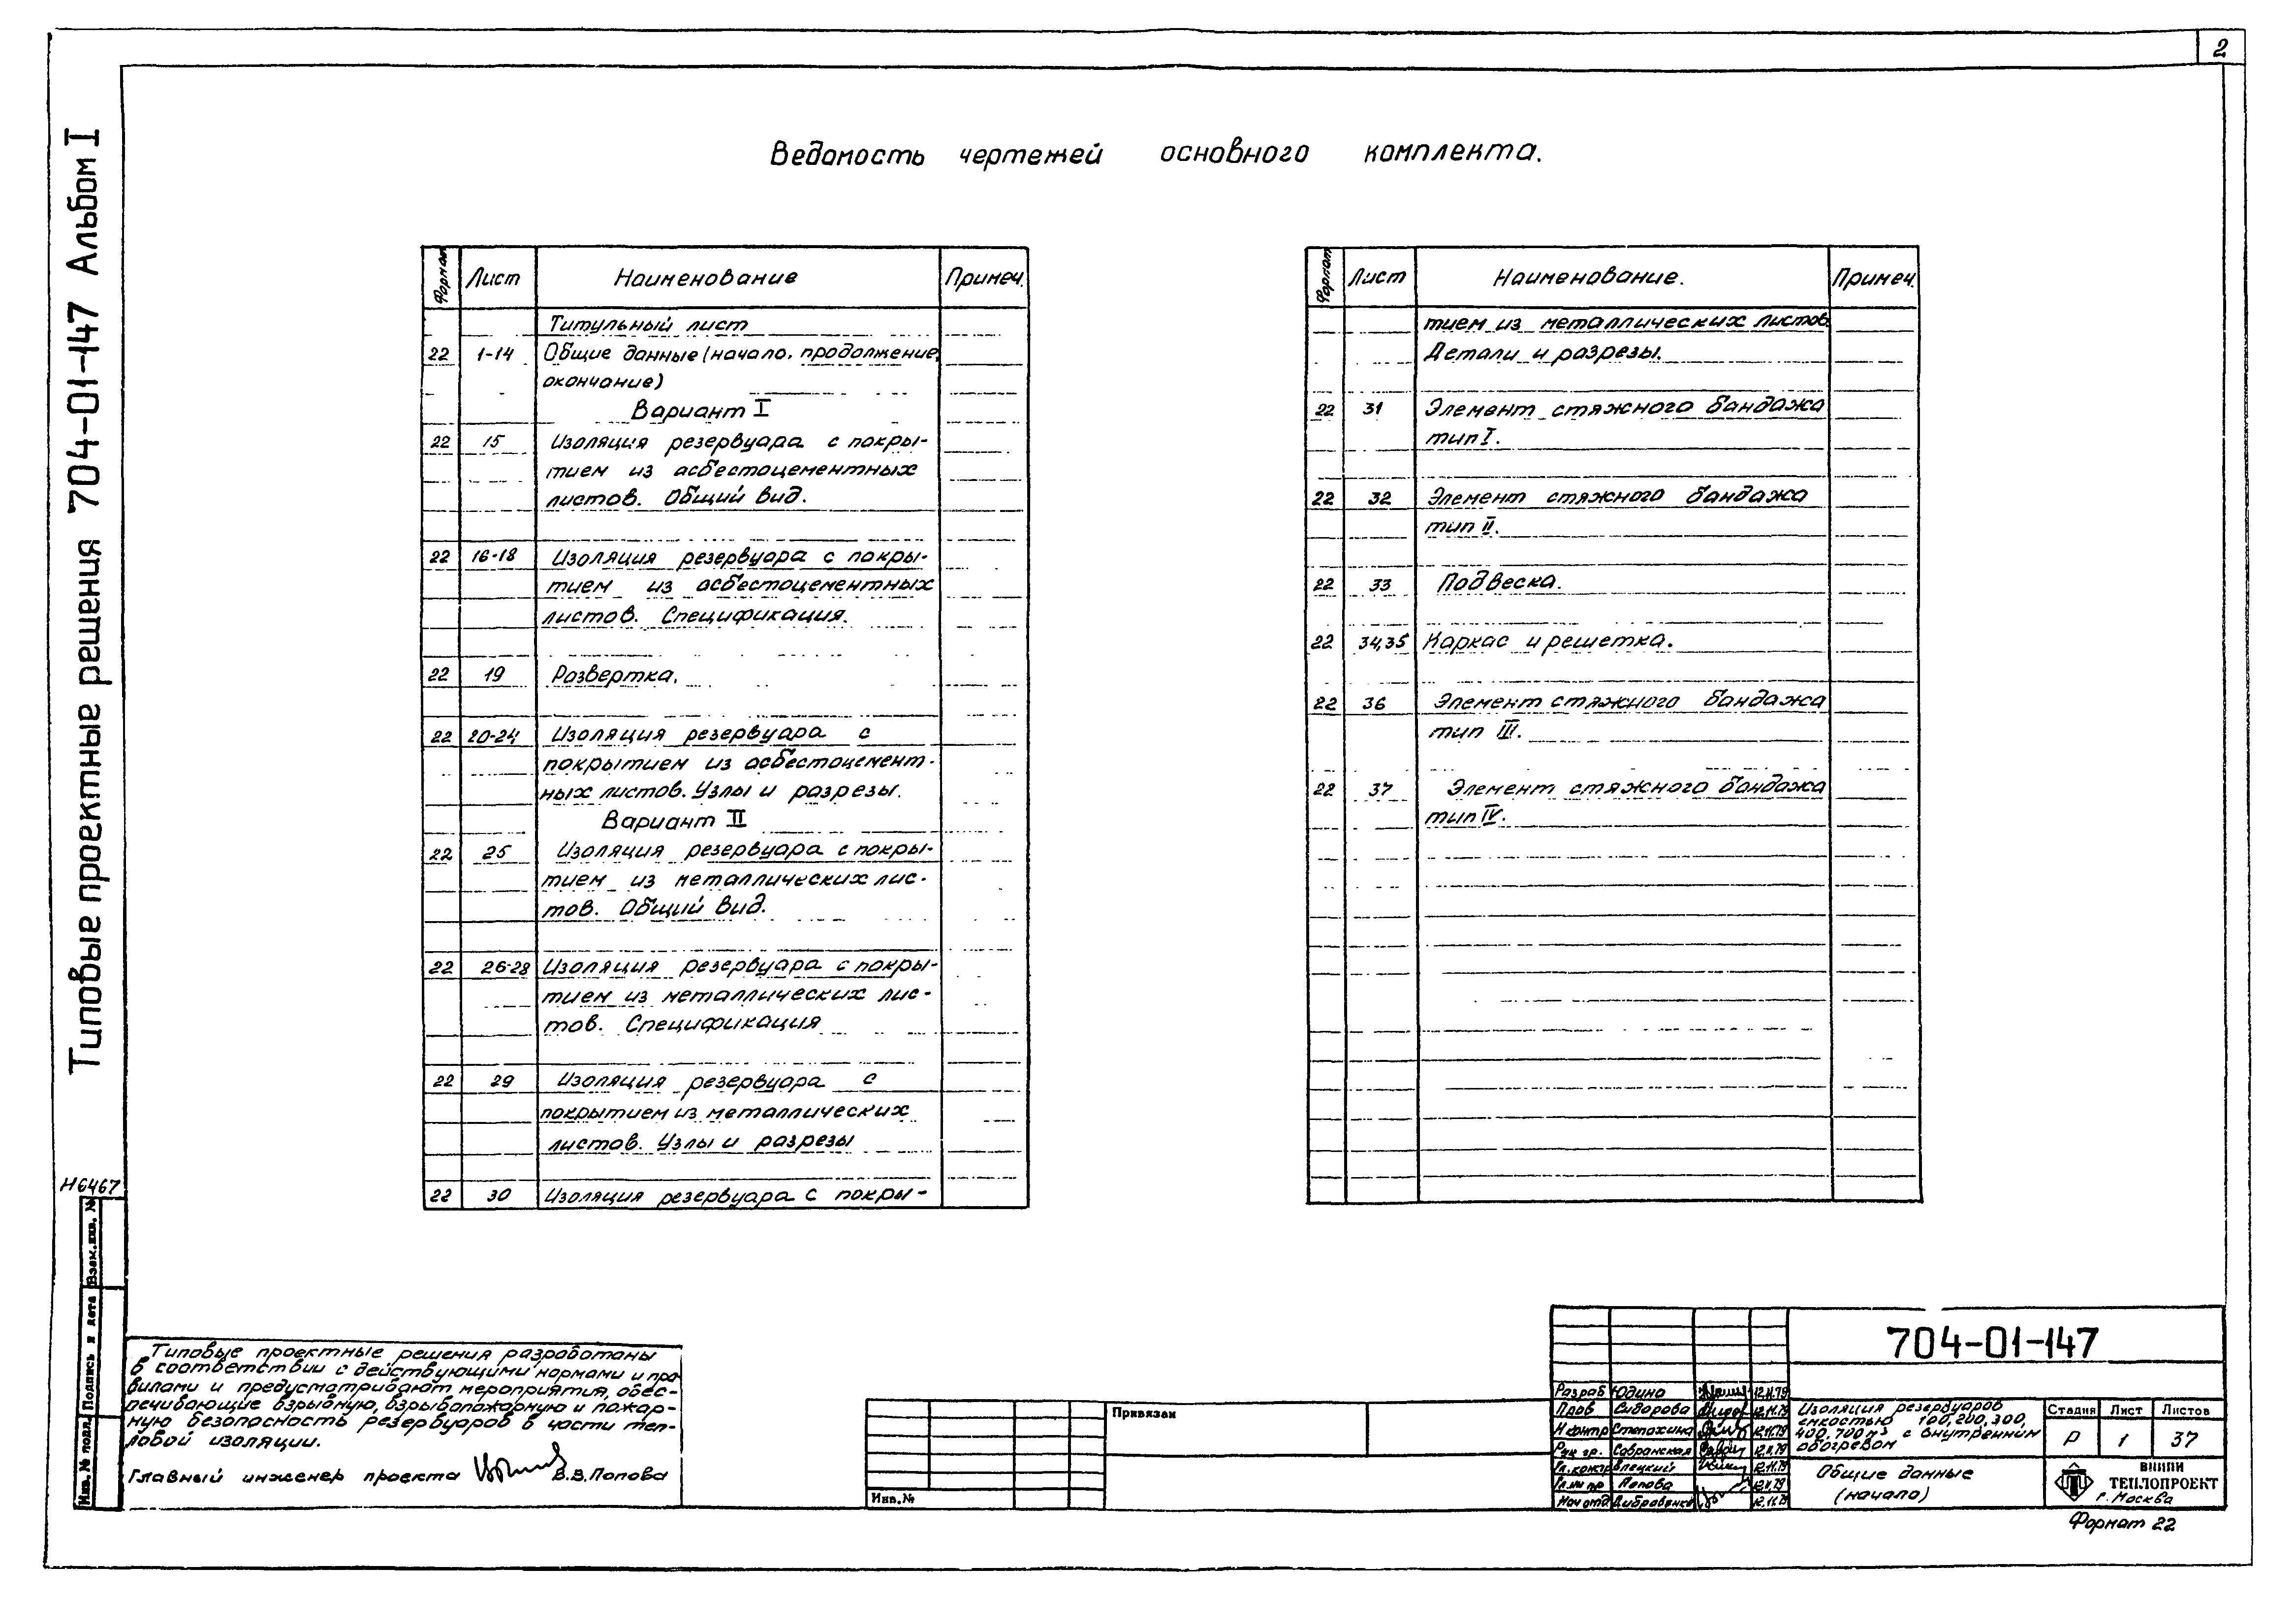 2
Типовые проектные решения 704-01-147 Альбом I
Ведомость чертежей основного комплекта.
Формат Лист Наименование Примеч.
Титульный лист
22 1-14 Общие данные (начало, продолжение,
окончание)
Вариант I
22 15 Изоляция резервуара с покры-
тием из асбестоцементных
листов. Общий вид.
22 16-18 Изоляция резервуара с покры-
тием из асбестоцементных
листов. Спецификация.
22 19 Развертка.
22 20-24 Изоляция резервуара с
покрытием из асбестоцемент-
ных листов. Узлы и разрезы.
Вариант II
22 25 Изоляция резервуара с покры-
тием из металлических лис-
тов. Общий вид.
22 26-28 Изоляция резервуара с покры-
тием из металлических лис-
тов. Спецификация
22 29 Изоляция резервуара с
покрытием из металлических
листов. Узлы и разрезы
22 30 Изоляция резервуара с покры-
Формат Лист Наименование. Примеч.
тием из металлических листов.
Детали и разрезы.
22 31 Элемент стяжного бандажа
тип I.
22 32 Элемент стяжного бандажа
тип II.
22 33 Подвеска.
22 34,35 Каркас и решетка.
22 36 Элемент стяжного бандажа
тип III.
22 37 Элемент стяжного бандажа
тип IV.
Н6467
Взам.инв. №
Подпись и дата
Инв. № подл.
Типовые проектные решения разработаны
в соответствии с действующими нормами и пра-
вилами и предусматривают мероприятия, обес-
печивающие взрывную, взрывопожарную и пожар-
ную безопасность резервуаров в части теп-
ловой изоляции.
Главный инженер проекта В.В.Попова
Инв.№
Привязан
704-01-147
Разраб Юдина 12.11.79
Пров Сидорова 12.11.79
Н контр Степахина 12.11.79
Рук. гр. Собранская 12.11.79
Гл. контр 12.11.79
Гл. инж пр Попова 12.11.79
Нач отд 12.11.79
Изоляция резервуаров
емкостью 100, 200, 300,
400, 700 м³ с внутренним
обогревом
Стадия Лист Листов
Р 1 37
Общие данные
(начало)
ВНИПИ
ТЕПЛОПРОЕКТ
г. Москва
Формат 22